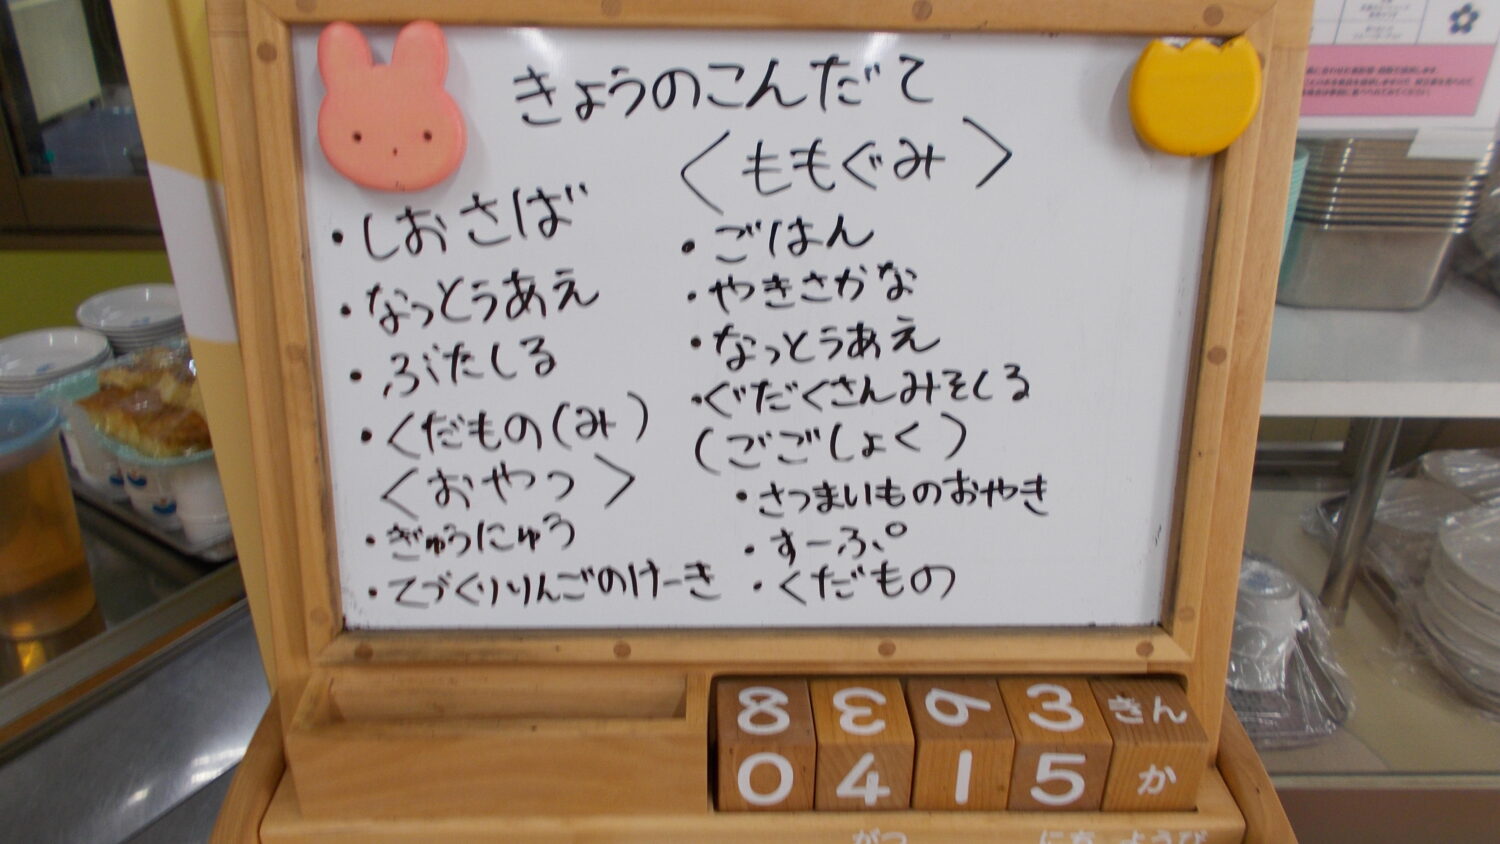 きょうのこんだて
・しおさば
・なっとうあえ
・ぶたしる
・くだもの(み)
＜おやつ＞
・ぎゅうにゅう
・てづくりりんごのけーき
＜ももぐみ＞
・ごはん
・やきさかな
・なっとうあえ
・ぐだくさんみそしる
(ごごしょく)
・さつまいものおやき
・すーぷ
・くだもの
8 3 6 3 きん
0 4 1 5 か
がつ にち ようび